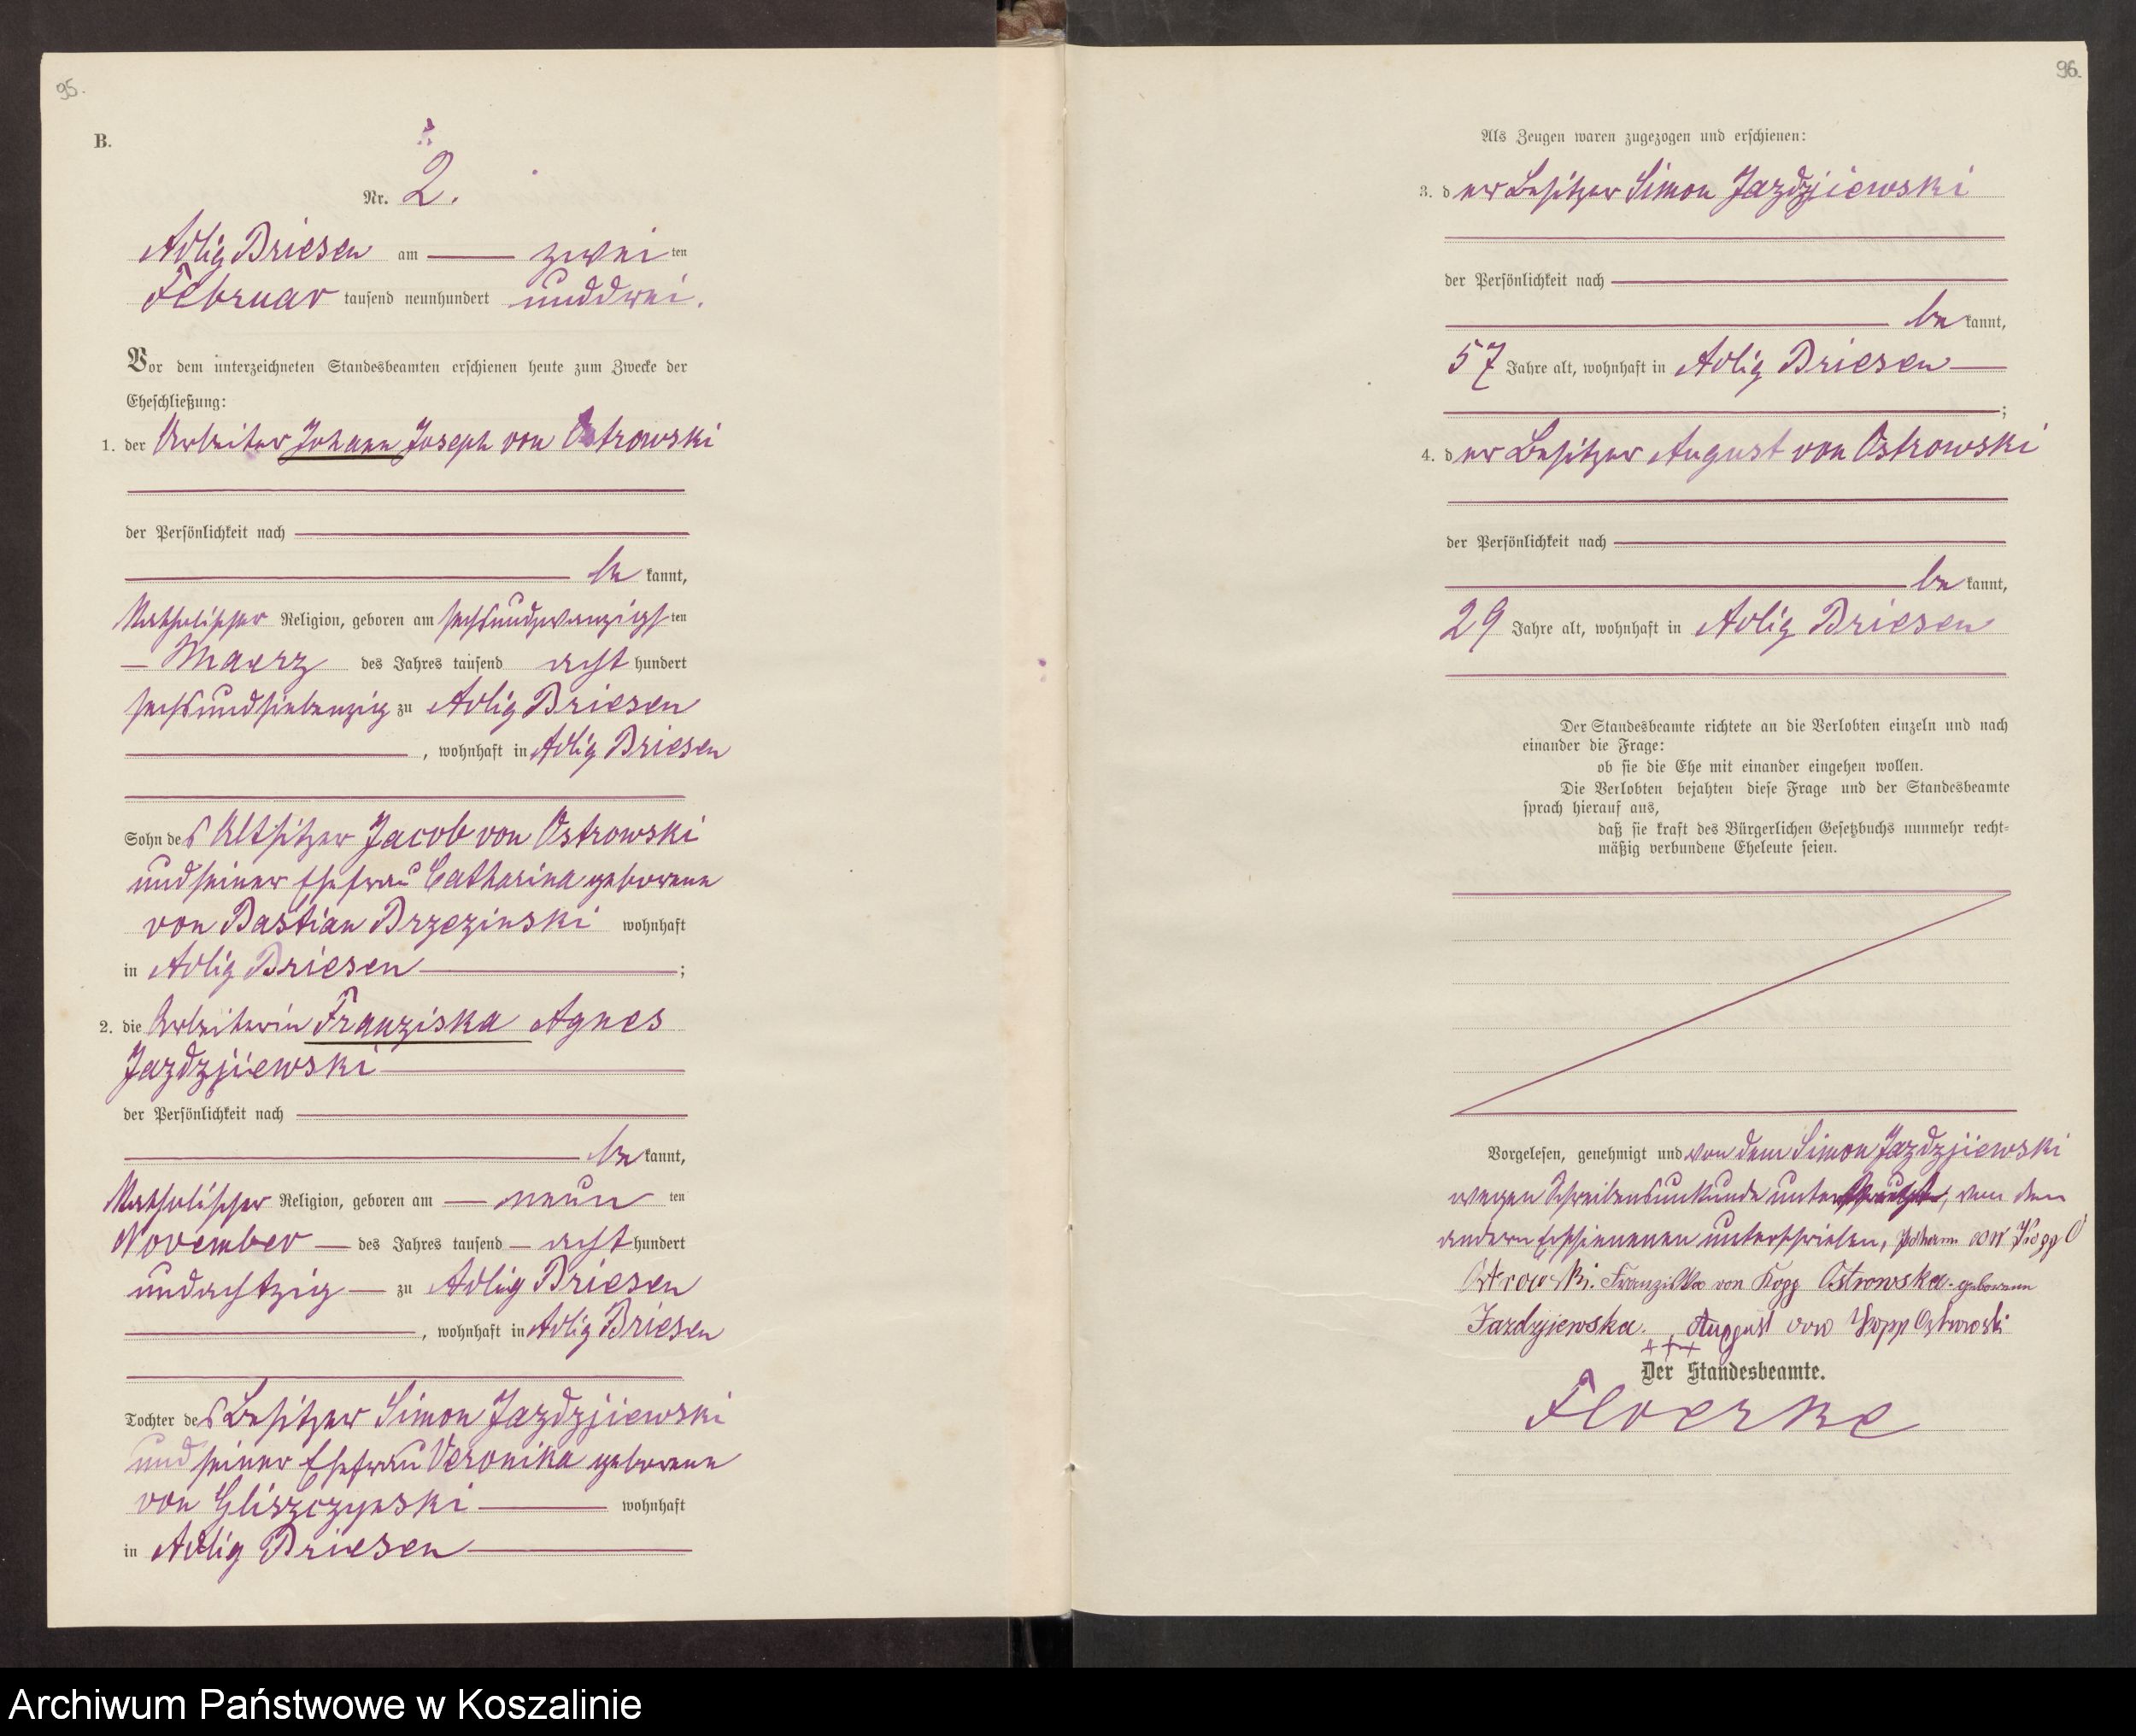 95.
B.
Nr. 2.
Adlig Briesen am zwei ten
Februar tausend neunhundert unddrei.
Vor dem unterzeichneten Standesbeamten erschienen heute zum Zwecke der
Eheschließung:
1. der Arbeiter Johann Joseph von Ostrowski
der Persönlichkeit nach
be kannt,
Katholischer Religion, geboren am sechsundzwanzigs ten
Maerz des Jahres tausend acht hundert
sechsundsiebenzig zu Adlig Briesen
, wohnhaft in Adlig Briesen
Sohn des Altsitzer Jacob von Ostrowski
und seiner Ehefrau Catharina geborene
von Bastian Brzezinski wohnhaft
in Adlig Briesen ;
2. die Arbeiterin Franziska Agnes
Jazdzjiewski
der Persönlichkeit nach
be kannt,
Katholischer Religion, geboren am neun ten
November des Jahres tausend acht hundert
undachtzig zu Adlig Briesen
, wohnhaft in Adlig Briesen
Tochter des Besitzer Simon Jazdzjiewski
und seiner Ehefrau Veronika geborene
von Gliszczynski wohnhaft
in Adlig Briesen
96.
Als Zeugen waren zugezogen und erschienen:
3. d er Besitzer Simon Jazdzjiewski
der Persönlichkeit nach
be kannt,
57 Jahre alt, wohnhaft in Adlig Briesen
;
4. d er Besitzer August von Ostrowski
der Persönlichkeit nach
be kannt,
29 Jahre alt, wohnhaft in Adlig Briesen
Der Standesbeamte richtete an die Verlobten einzeln und nach
einander die Frage:
ob sie die Ehe mit einander eingehen wollen.
Die Verlobten bejahten diese Frage und der Standesbeamte
sprach hierauf aus,
daß sie kraft des Bürgerlichen Gesetzbuchs nunmehr recht-
mäßig verbundene Eheleute seien.
Vorgelesen, genehmigt und von dem Simon Jazdzjiewski
wegen Schreibensunkunde unterkreuzt, von den
andern Erschienenen unterschrieben, Johann von
Ostrowski. Franziska von Kopp Ostrowska geborenn
Jazdzjiewska. +++ August von Kopp Ostrowski
Der Standesbeamte.
Floerke
Archiwum Państwowe w Koszalinie